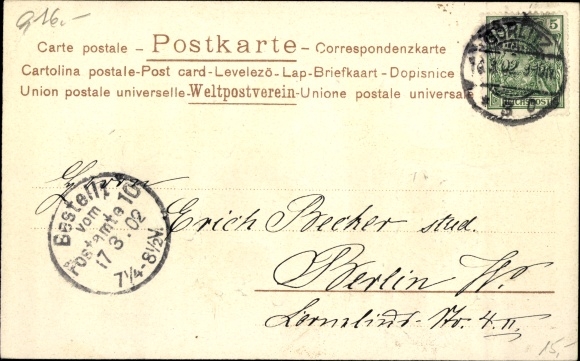 916.-
Carte postale – Postkarte – Correspondenzkarte
Cartolina postale-Post card-Levelezö-Lap-Briefkaart-Dopisnice
Union postale universelle-Weltpostverein-Unione postale universale
5
GÖRLITZ
02
REICHSPOST
Herrn
Erich Becker stud.
Berlin W.
Str. 4 II
Bestellt
vom
Postamte 10
17 3. 02
7¼-8½V.
15,-